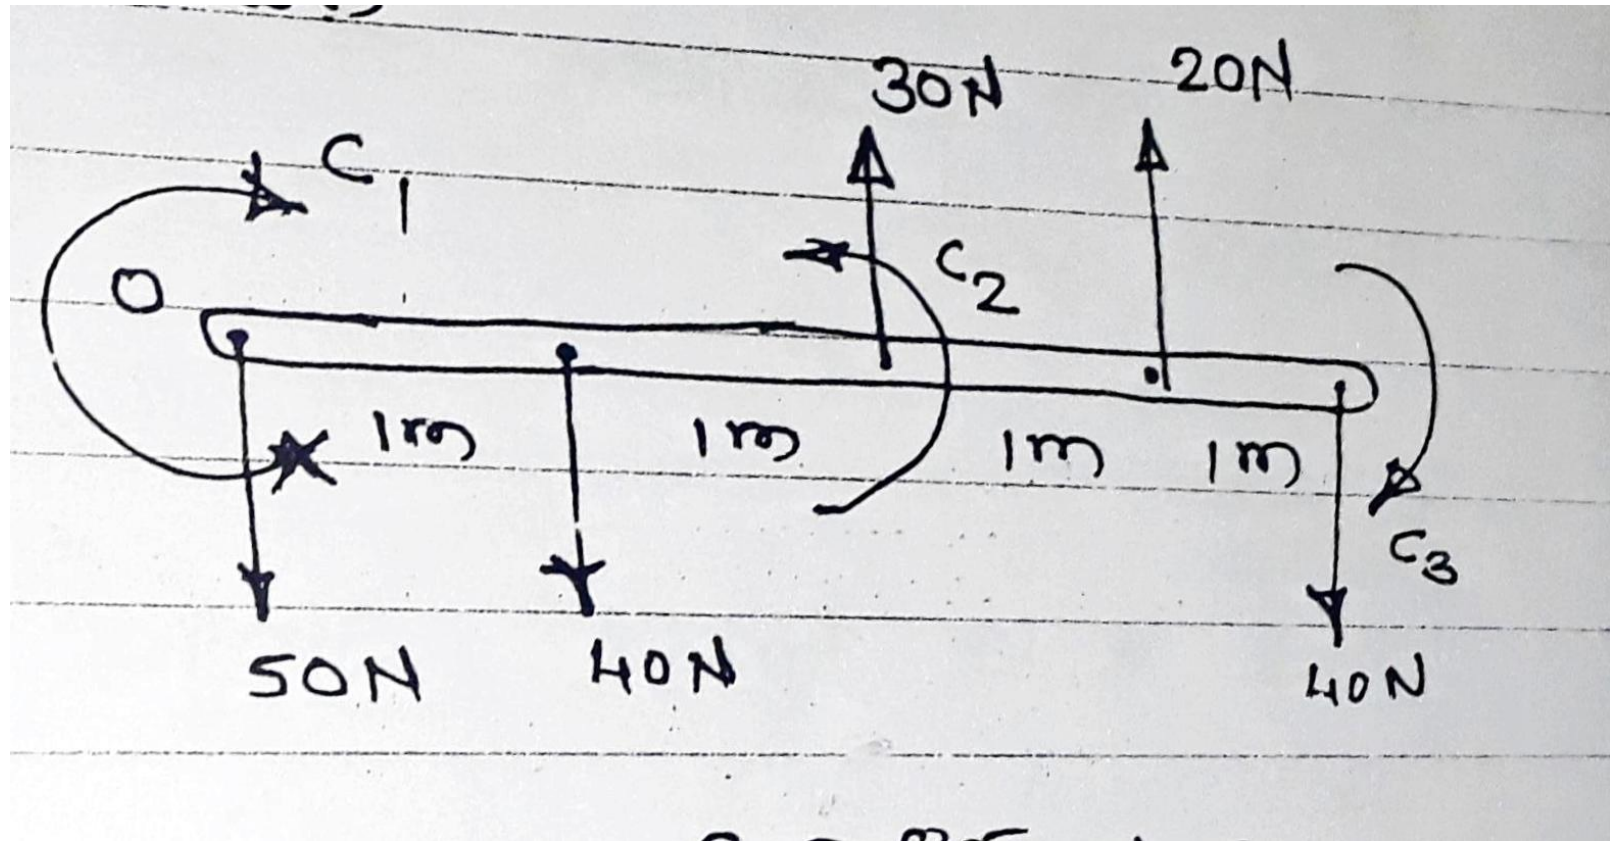 30N 20N
C1
C2
O
1m 1m 1m 1m
C3
50N 40N 40N